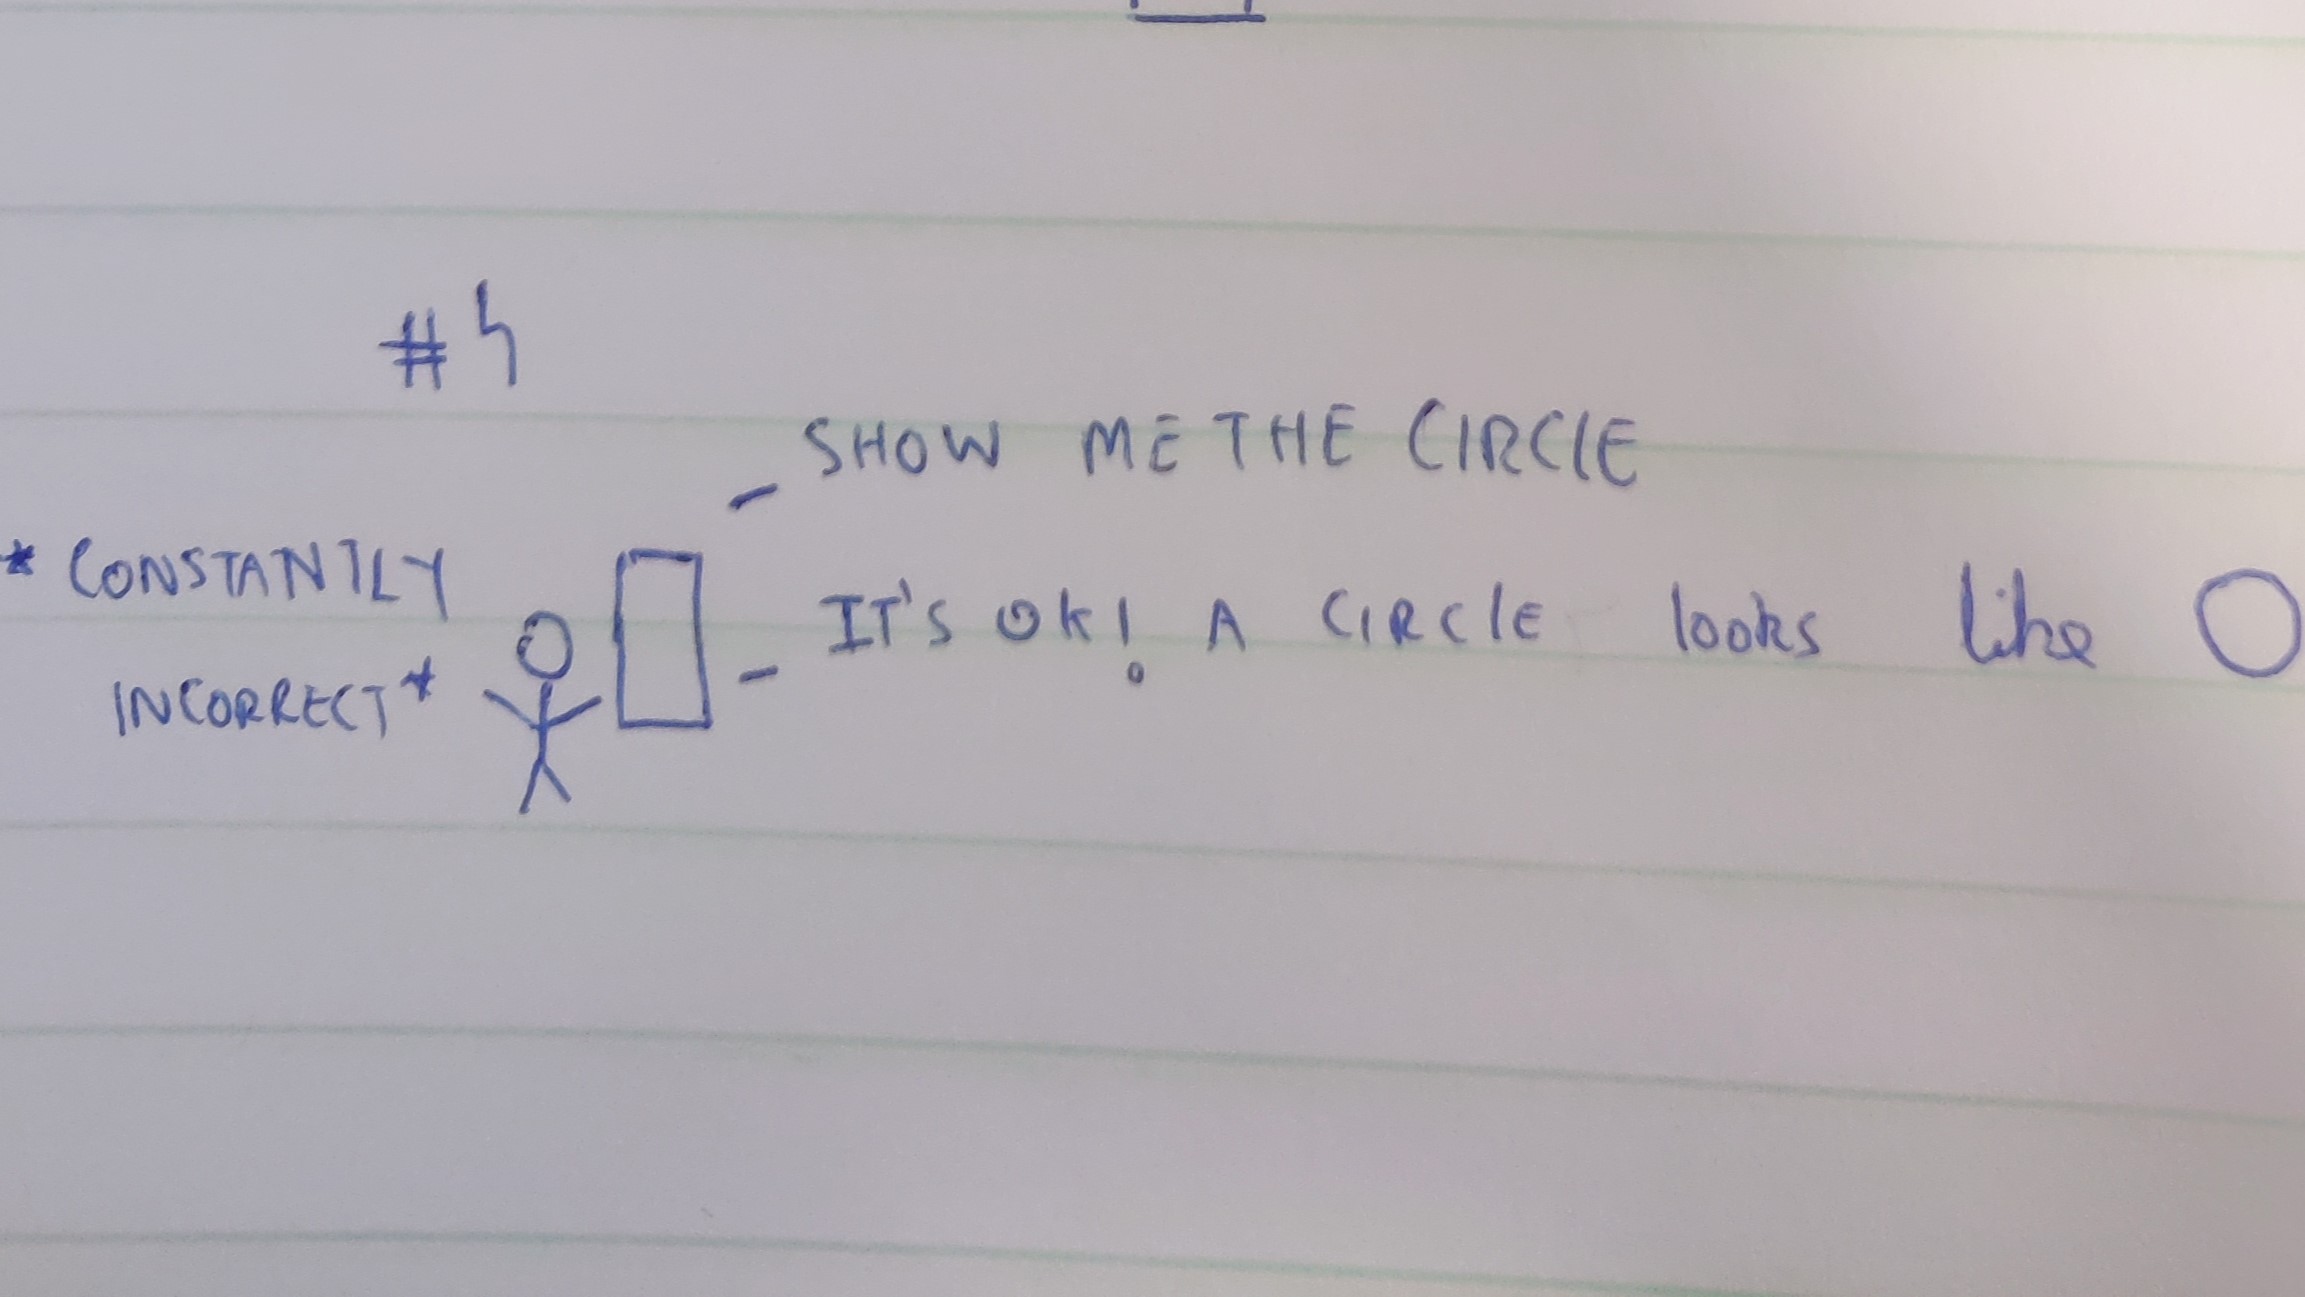 #4
SHOW ME THE CIRCLE
* CONSTANTLY
INCORRECT*
IT'S OK! A CIRClE looks like O